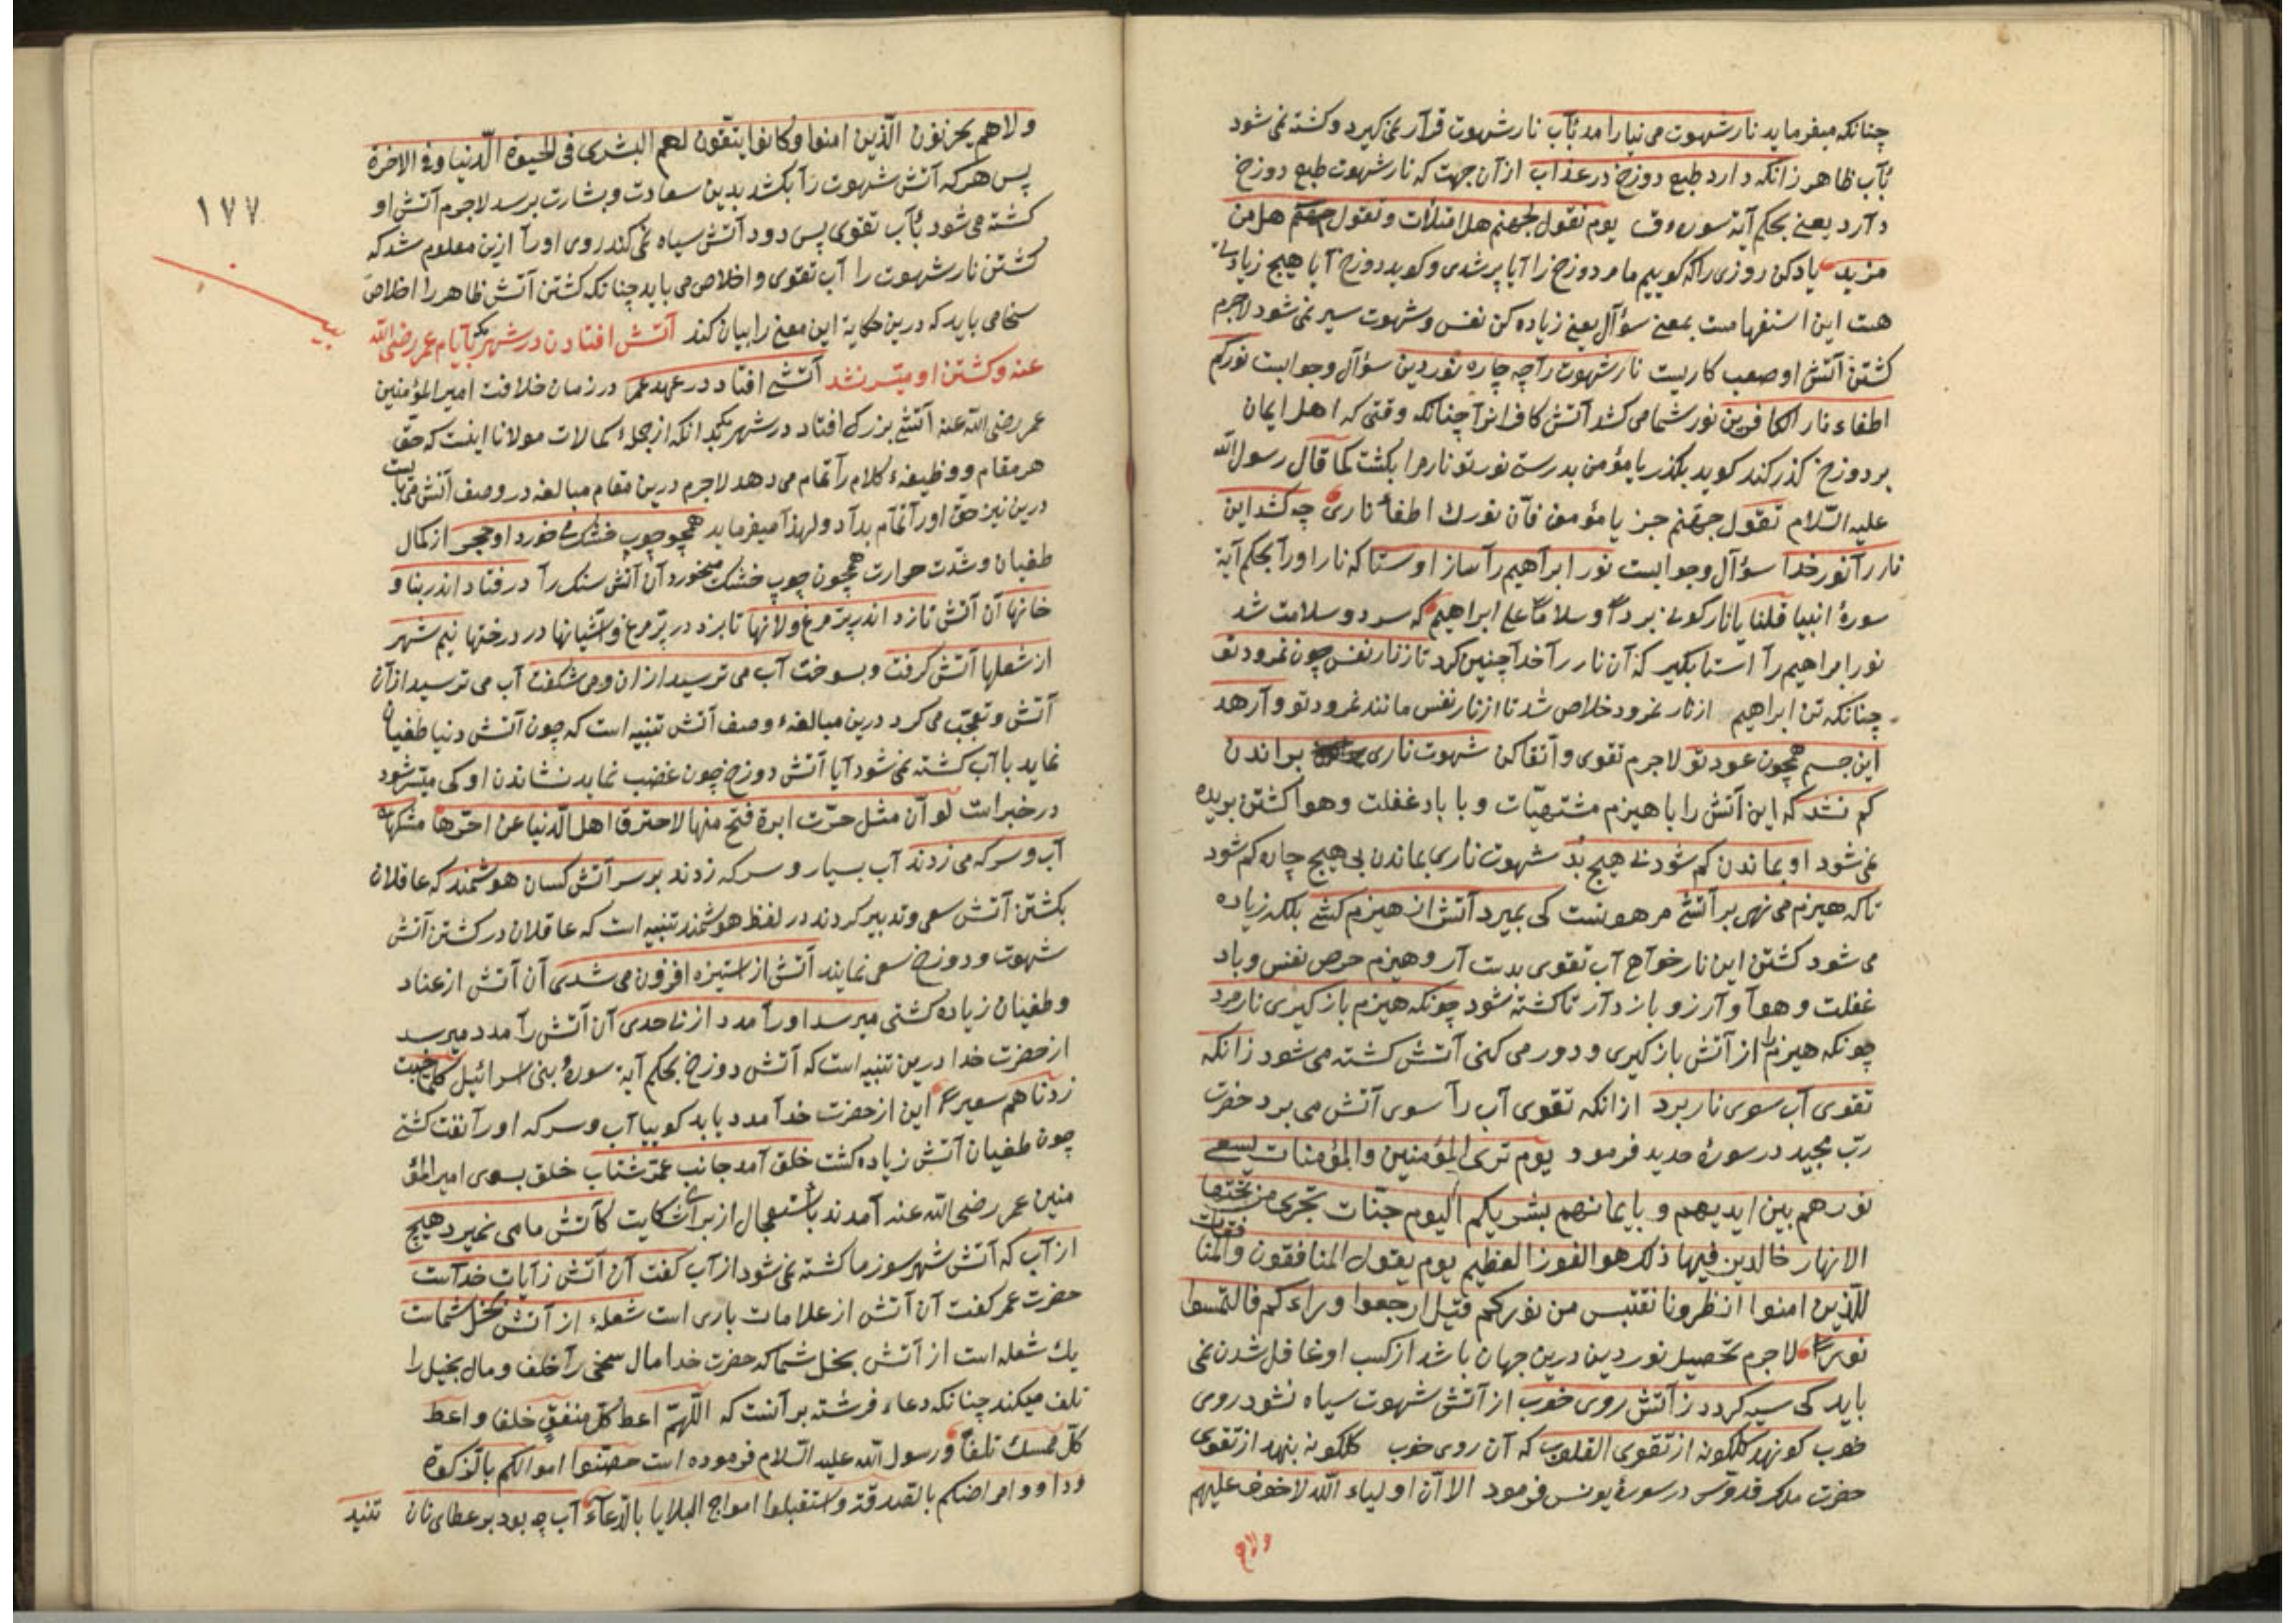 چنانکه میفرماید نار شهوت می نیارامد بآب نار شهوت قرار نمی کیرد وکشته نمی شود
بآب ظاهر زانکه دارد طبع دوزخ در عذاب ازآن جهت که نار شهوت طبع دوزخ
دارد یعنے بحکم آیة سوره ق یوم نقول لجهنم هل امتلأت وتقول هل من
مزید یاد کن روزی را که کوییم ما مر دوزخ را آیا پر شدی و کوید دوزخ آیا هیچ زیادتے
هست این استفهامست بمعنے سؤال یعنے زیاده کن نفس وشهوت سیر نمی شود لاجرم
کشتن آتش او صعب کاریست نار شهوت را چه چاره نور دین سؤال وجوابست نورکم
اطفاء نار الکافرین نور شما می کشد آتش کافرانرا چنانکه وقتی که اهل ایمان
بر دوزخ کذر کند کوید بکذر یا مؤمن بدرستے نور تو نار مرا بکشت کما قال رسول الله
علیه السّلام تقول جهنم جز یا مؤمن فانّ نورك اطفأ ناری چه کشد این
نار را نور خدا سؤال وجوابست نور ابراهیم را ساز اوستا که نار او را بحکم آیة
سورهٔ انبیا قلنا یا نار کونے بردا وسلاما علے ابراهیم که سرد وسلامت شد
نور ابراهیم را استا بکیر که آن نار را خدا چنین کرد تا ز نار نفس چون نمرود تو
چنانکه تن ابراهیم از نار نمرود خلاص شد تا از نار نفس مانند نمرود تو وارهد
این جسم همچون عود تو لاجرم تقوی واتقا کن شهوت ناری براندن
کم نشد که این آتش را با هیزم مشتهیّات و با باد غفلت وهوا کشتن بریده
نمی شود او بماندن کم شود بے هیچ بدّ شهوت ناری بماندن بی هیچ چاره کم شود
تا که هیزم می نهی بر آتشے مر هونست کی بمیرد آتش از هیزم کشے بلکه زیاده
می شود کشتن این نار خواهے آب تقوی بدست آر و هیزم حرص نفس وباد
غفلت وهوا وآرزو باز دار تا کشته شود چونکه هیزم باز کیری نار مرد
چونکه هیزم را از آتش باز کیری و دور می کنی آتش کشته می شود زانکه
تقوی آب سوی نار برد ازانکه تقوی آب را سوی آتش می برد حضرت
ربّ مجید در سورهٔ حدید فرمود یوم تری المؤمنین والمؤمنات یسعے
نورهم بین ایدیهم وبایمانهم بشریکم الیوم جنّات تجری من تحتها
الانهار خالدین فیها ذلك هو الفوز العظیم یوم یقول المنافقون والمنافقات
للّذین امنوا انظرونا نقتبس من نورکم قیل ارجعوا وراءکم فالتمسوا
نورا لاجرم تحصیل نور دین درین جهان باشد از کسب او غافل شدن نمی
باید کی سیه کردد ز آتش روی خوب از آتش شهوت سیاه نشود روی
خوب کو نهد کلکونه از تقوی القلوب که آن روی خوب کلکونه بنهد از تقوی
حضرت ملك قدوّس در سورهٔ یونس فرمود الا انّ اولیاء الله لا خوف علیهم
ولا هم
١٧٧
ولا هم یحزنون الّذین امنوا وکانوا یتّقون لهم البشری فی الحیوة الّدنیا وفی الاخرة
پس هر که آتش شهوت را بکشد بدین سعادت وبشارت برسد لاجرم آتش او
کشته می شود بآب تقوی پس دود آتش سیاه نمی کند روی اورا ازین معلوم شد که
کشتن نار شهوت را آب تقوی واخلاص می باید چنانکه کشتن آتش ظاهر را اخلاص
سخا می باید که درین حکایة این معنے را بیان کند آتش افتادن در شهر بایام عمر رضی الله
عنه وکشتن او میسر نشد آتشے افتاد در عهد عمر در زمان خلافت امیر المؤمنین
عمر رضی الله عنه آتشے بزرك افتاد در شهر بدانکه از جملهٔ کمالات مولانا اینست که حق
هر مقام و وظیفهٔ کلام را تمام می دهد لاجرم درین مقام مبالغه در وصف آتش می بایست
درین نیز حق اورا تمام بداد ولهذا میفرماید همچو چوب خشك مے خورد او حجر از کمال
طغیان وشدّت حرارت همچون چوب خشك میخورد آن آتش سنك را در فتاد اندر بنا و
خانها آن آتش تا زد اندر پر مرغ ولانها تا بزد در پر مرغ واشیانها در درختها نیم شهر
از شعلها آتش کرفت وبسوخت آب می ترسید ازان ومی شکفت آب می ترسید ازآن
آتش وتعجّب می کرد درین مبالغهٔ وصف آتش تنبیه است که چون آتش دنیا طغیان
نماید با آب کشته نمی شود آیا آتش دوزخ چون غضب نماید نشاندن او کی میسّر شود
در خبر است لو انّ مثل خرت ابرة فتح منها لاحترق اهل الّدنیا عن اخرها مشکهای
آب وسرکه می زدند آب بسیار وسرکه زدند بر سر آتش کسان هوشمند که عاقلان
بکشتن آتش سعی وتدبیر کردند در لفظ هوشمند تنبیه است که عاقلان در کشتن آتش
شهوت ودوزخ سعی نمایند آتش از استیزه افزون می شدی آن آتش از عناد
وطغیان زیاده کشتی میرسد اورا مدد از بے حدی آن آتش را مدد میرسد
از حضرت خدا درین تنبیه است که آتش دوزخ بحکم آیة سورهٔ بنی اسرائیل کلّما خبت
زدناهم سعیرا این از حضرت خدا مدد یابد کوییا آب وسرکه اورا نفت کشتے
چون طغیان آتش زیاده کشت خلق آمد جانب عمر شتاب خلق بسوی امیر المؤ
منین عمر رضی الله عنه آمدند باستعجال از برای شکایت کآتش ما می نمیرد هیچ
از آب که آتش شهر سوز ما کشته نمی شود از آب کفت آن آتش ز آیات خداست
حضرت عمر کفت آن آتش از علامات باری است شعلهٔ از آتش بخل شماست
یك شعله است از آتش بخل شما که حضرت خدا مال سخی را خلف ومال بخیل را
تلف میکند چنانکه دعاء فرشته بر آنست که اللّهمّ اعط کلّ منفق خلفا واعط
کلّ ممسك تلفاً ورسول الله علیه السّلام فرموده است حصّنوا اموالکم بالزکوة
وداووا مراضکم بالصدقة واستقبلوا امواج البلایا بالدعاء آب چه بود بر عطای نان
تنید